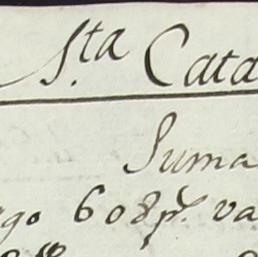 S.ta Cata
Suma
go 608p.s va